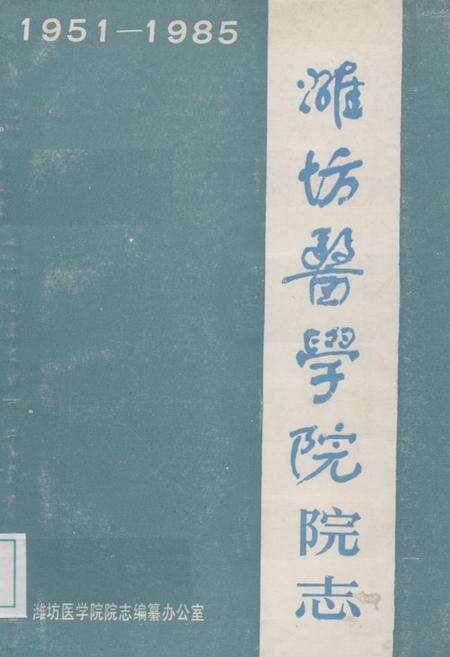 1951—1985
潍坊醫學院院志
潍坊医学院院志编纂办公室